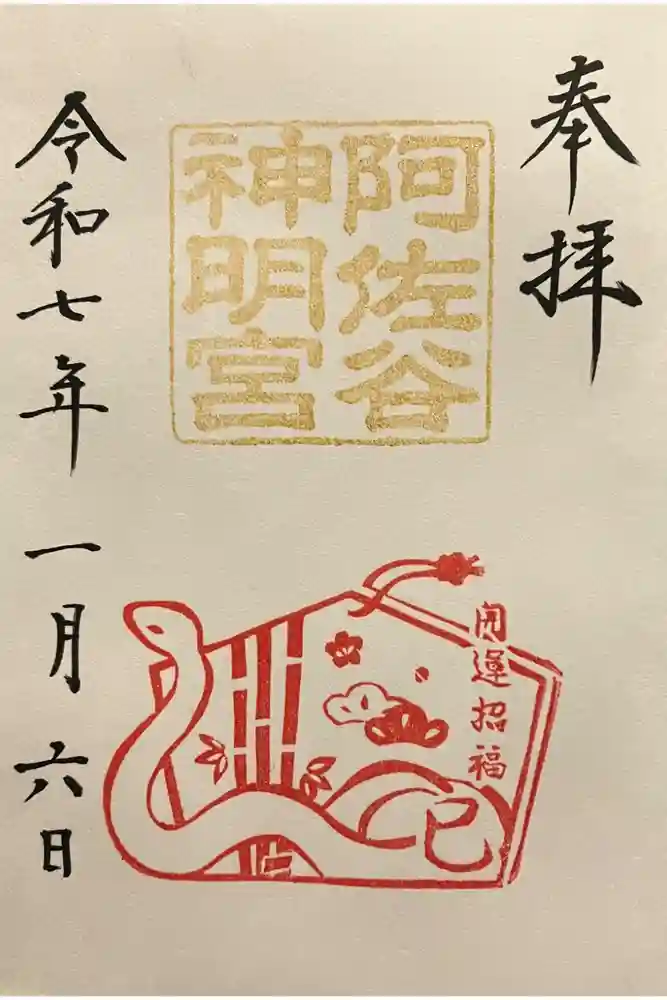 奉拝
阿佐谷
神明宮
開運招福
巳
令和七年一月六日